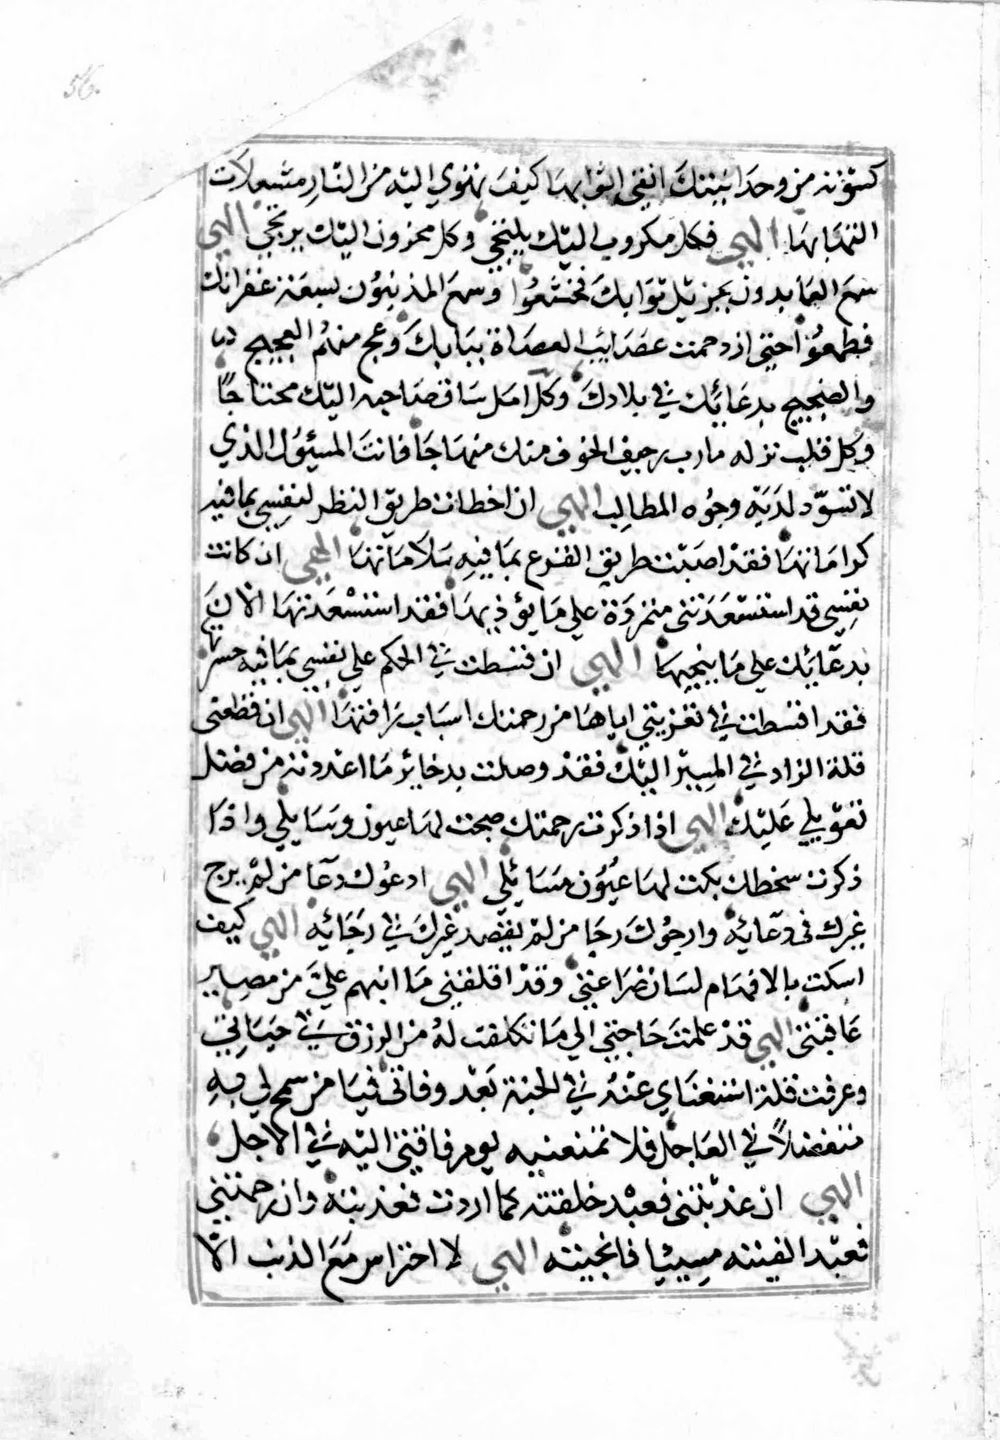 56.
كسوته من وحدانيتك انقى اثوابها كيف تهوي اليه من النار مشعلات
التهابها الهي فكل مكروب اليك يلتجي وكل محزون اليك يرتجي الهي
سمع العابدون بجزيل ثوابك فخشعوا وسمع المذنبون بسعة غفرانك
فطمعوا حتى ازدحمت عصائب العصاة ببابك وعج منهم العجيج
والضجيج بدعائك في بلادك وكل امل ساق صاحبه اليك محتاجا
وكل قلب تركه يارب رجيف الخوف منك مهتاجا فانت المسئول الذي
لا تسود لديه وجوه المطالب الهي ان اخطات طريق النظر لنفسي بما فيه
كراماتها فقد اصبت طريق الفزع بما فيه سلاماتها الهي ان كانت
نفسي قد استسعدتني متمردة على ما يؤذيها فقد استسعدتها الآن
بدعائك على ما ينجيها الهي ان قسطت في الحكم على نفسي بما فيه حسرتها
فقد اقسطت في تعزيتي اياها من رحمتك اسباب رافتها الهي ان قطعني
قلة الزاد في المسير اليك فقد وصلت بذخائر ما اعددته من فضل
تعويلي عليك الهي اذا ذكرت رحمتك ضحكت لها عيون وسايلي واذا
ذكرت سخطك بكت لها عيون مسايلي الهي ادعوك دعا من لم يرج
غيرك في دعائه وارجوك رجا من لم يقصد غيرك في رجائه الهي كيف
اسكت بالافهام لسان ضراعتي وقد اقلقني ما ابهم علي من مصير
عاقبتي الهي قد علمت حاجتي الى ما تكلفت له من الرزق في حياتي
وعرفت قلة استغناي عنه في الجنة بعد وفاتي فيا من سمح لي به
متفضلا في العاجل فلا تمنعنيه يوم فاقتي اليه في الاجل
الهي ان عذبتني فعبد خلقته كما اردت تعذيبه وان رحمتني
فعبد الفيته مسيئا فانجيته الهي لا احتراس مع الذنب الا